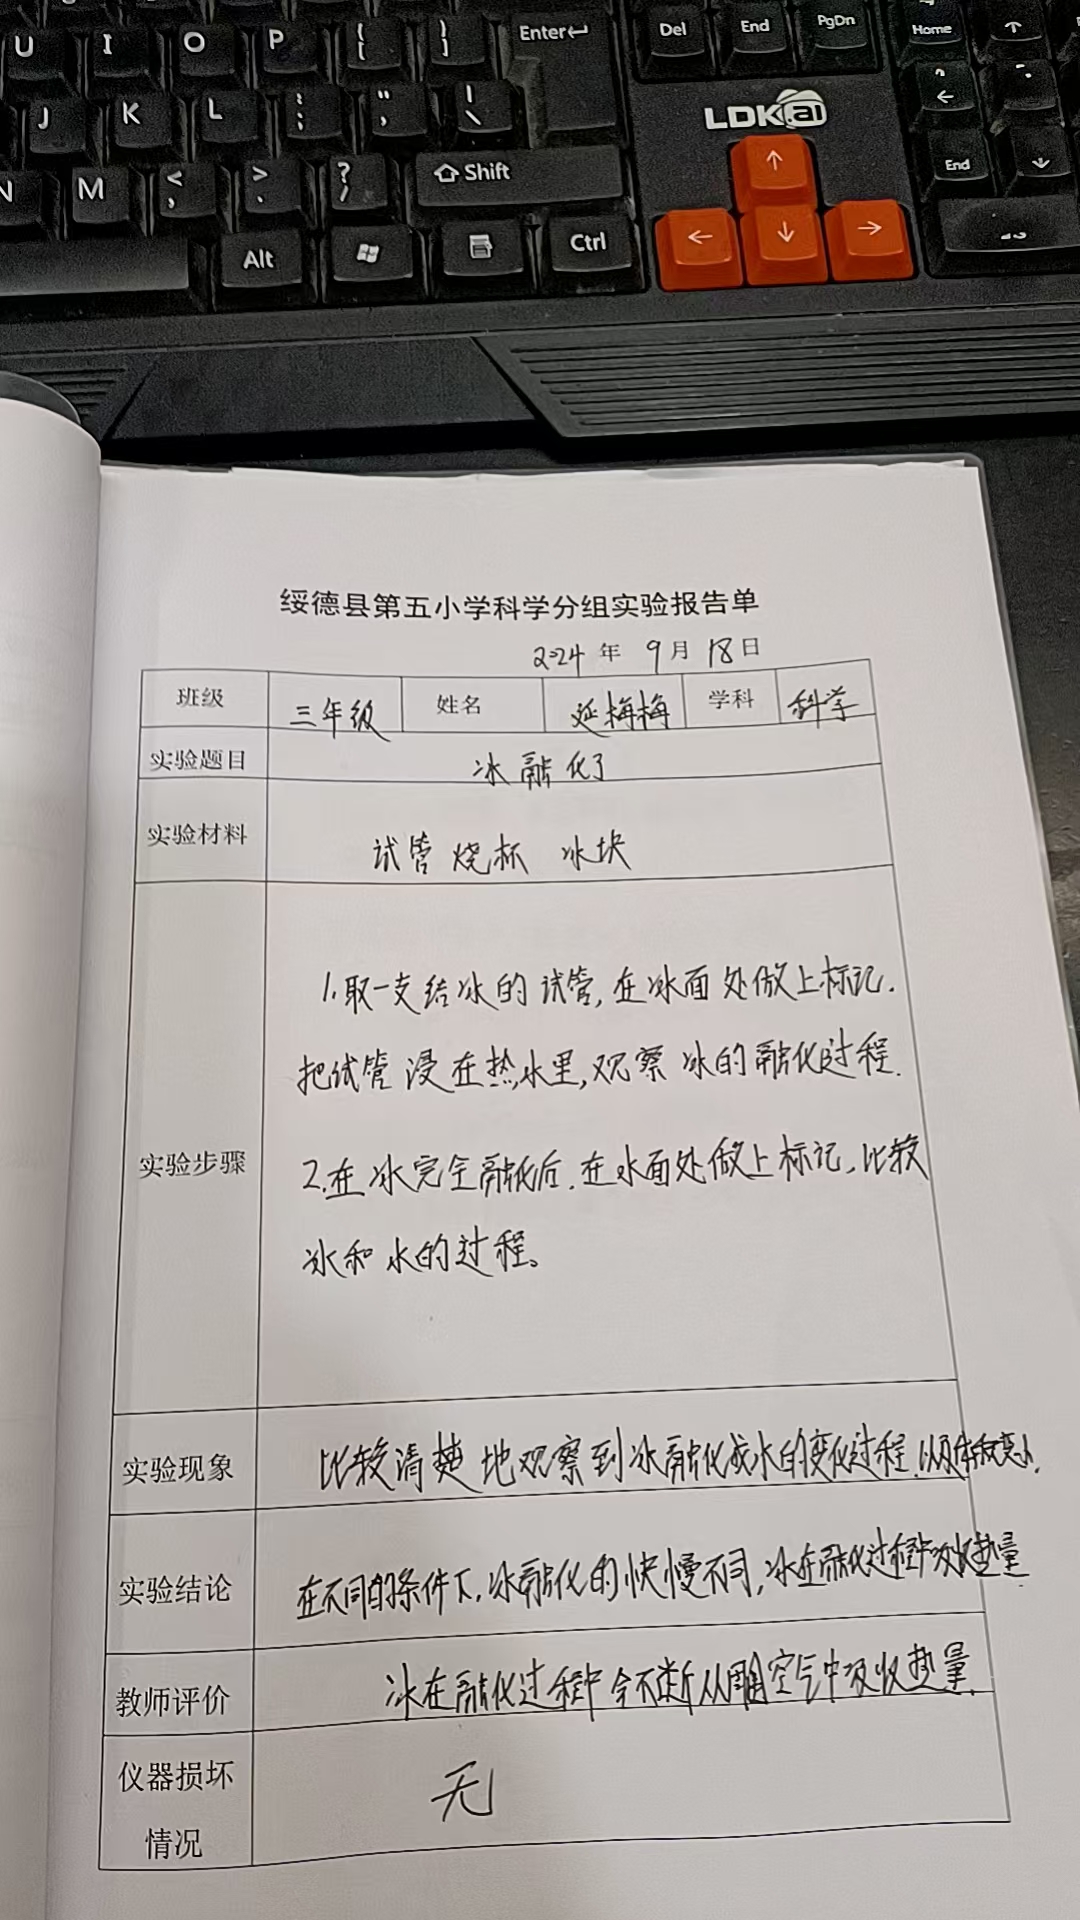 U I O P { [ } ] Enter Del End PgDn Home
J K L : ; " ' | \ LDK ai
N M < , > . ? / Shift End
Alt Ctrl
绥德县第五小学科学分组实验报告单
2024 年 9 月 18 日
班级 三年级 姓名 延梅梅 学科 科学
实验题目 冰融化了
实验材料 试管 烧杯 冰块
实验步骤
1.取一支结冰的试管,在冰面处做上标记.
把试管浸在热水里,观察冰的融化过程.
2.在冰完全融化后.在水面处做上标记,比较
冰和水的过程。
实验现象 比较清楚地观察到冰融化成水的变化过程.以及体积变小.
实验结论 在不同的条件下,冰融化的快慢不同,冰在融化过程中吸收热量.
教师评价 冰在融化过程中会不断从周围空气中吸收热量.
仪器损坏 无
情况